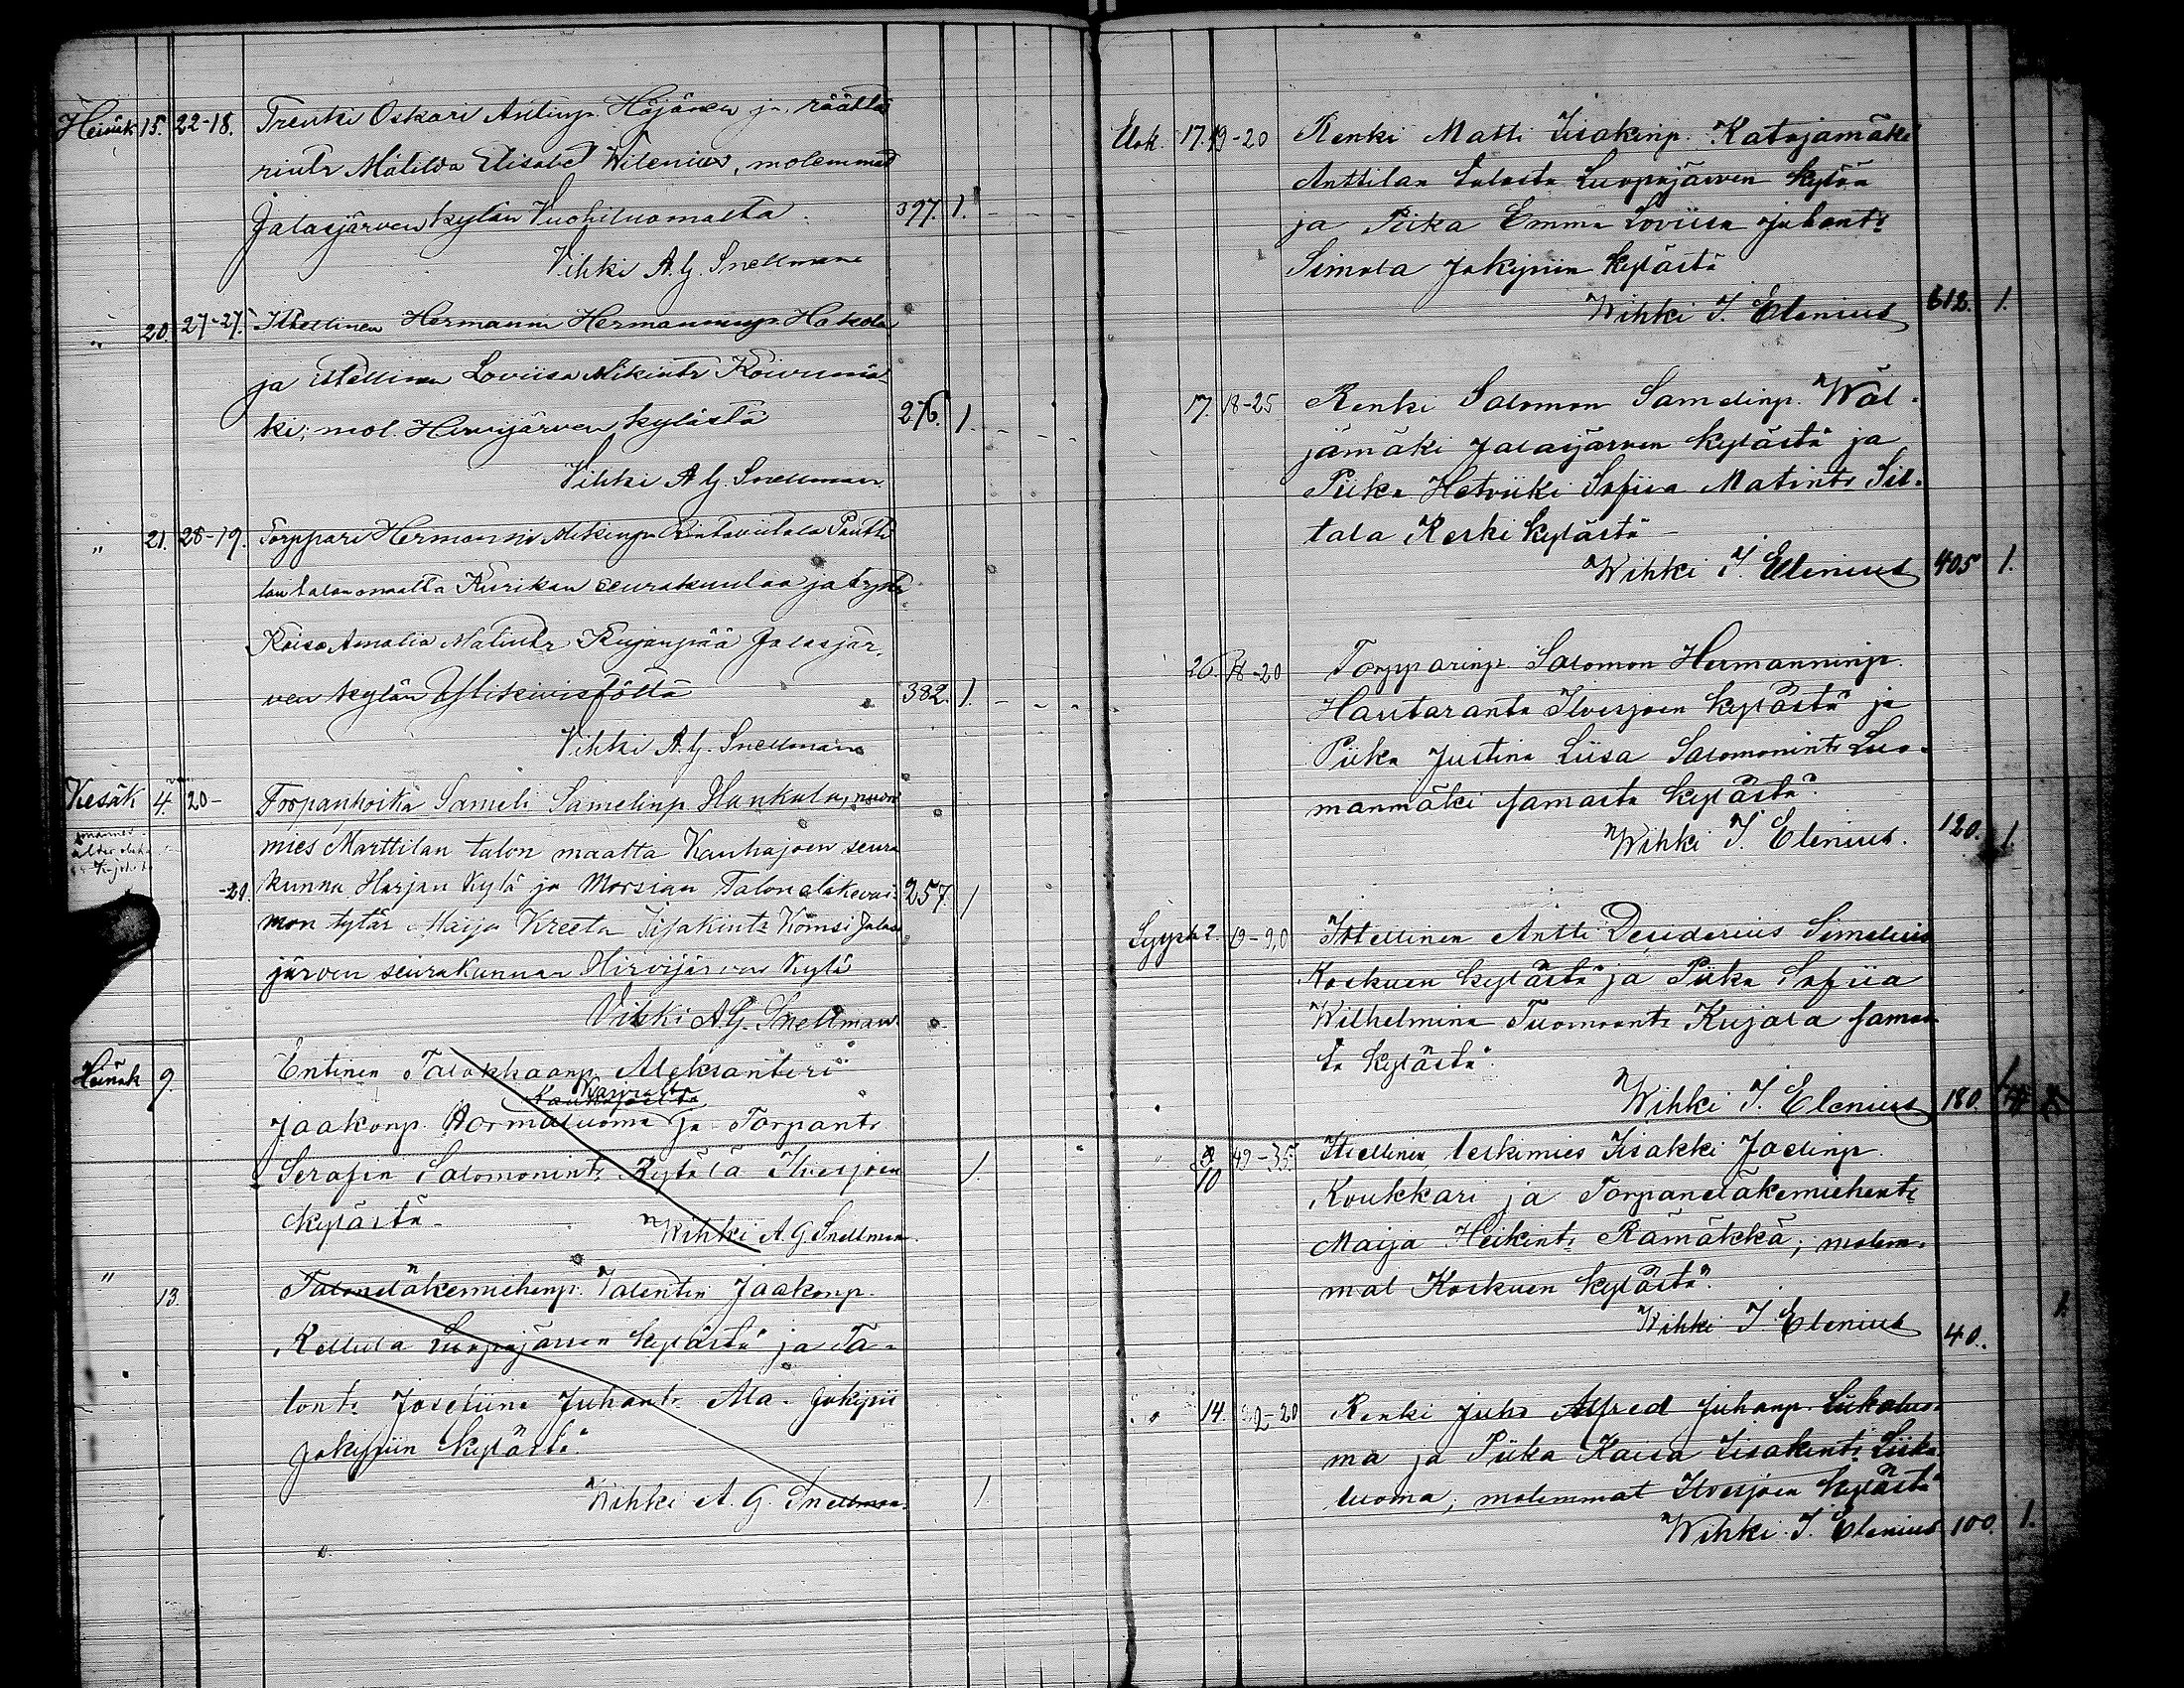 Heinäk 15. 22-18. Trenki Oskari Antinp. Höjänen ja räättä
rintr Matilda Elisabet Wilenius, molemmat
Jalasjärven kylän Vuohiluomalta 397. 1.
Vihki A. G. Snellman
" 20. 27-27. Itsellinen Hermanni Hermanninp. Hakola
ja itsellinen Loviisa Mikintr Koivumä-
ki; mol. Hirvijärven kylästä 276. 1.
Vihki A G. Snellman
" 21. 28-19. Torppari Hermanni Mikinp. Rintaviitala
lan talon maalta Kurikan seurakuntaa ja
Kaisa Amalia Matintr Kujanpää Jalasjär,
ven kylän 382. 1.
Vihki A. G. Snellman
Kesäk 4. 20- Torpanpoika Sameli Samelinp. Hankala, nuori
mies Marttilan talon maalta Kauhajoen seura
-29. kunna Harjan kylä ja Morsian Taloneläkevai- 257. 1
mon tytär Maija Kreeta Iisakintr Komsi Jalas
järven seurakunnan Hirvijärven kylä
Vihki A G. Snellman
Heinäk 9. Entinen Talokkaanp. Aleksanteri
Jaakonp. Hormaluoma ja Torpantr
Serafin Salomonintr Rytölä Ilvesjoen 1.
kylästä
Wihki A. G Snellman.
" 13. Taloneläkemiehenp. Valentin Jaakonp.
Kellula Luopajärven kylästä ja Ta-
lontr Josefiina Juhantr Ala-Jokipii
Jokipiin kylästä
Wihki A. G. Snellman. 1
Elok. 17. 19-20 Renki Matti Iisakinp. Katajamäki
Anttilan talosta Luopajärven kylän
ja Piika Emma Loviisa Juhantr
Simola Jokipiin kylästä
Wihki I. Elenius 612. 1.
17. 18-25 Renki Salomon Samelinp. Wäl-
jämäki Jalasjärven kylästä ja
Piika Hetviiki Sofiia Matintr Sil-
tala Keski kylästä
Wihki I. Elenius 405 1.
26. 18-20 Torpparinp. Salomon Hermanninp.
Hautaranta Ilvesjoen kylästä ja
Piika Justina Liisa Salomonintr Luo-
manmäki samasta kylästä.
Wihki I. Elenius. 120. 1.
Syysk 2. 19-20 Itsellinen Antti Desiderius Simelius
Koskuen kylästä ja Piika Sofiia
Wilhelmina Tuomaantr Kujala samas
ta kylästä.
Wihki I. Elenius 180.
10 49-35 Itsellinen, leskimies Iisakki Joelinp.
Koukkari ja Torpaneläkemiehentr
Maija Heikintr Rämäkkä; molem-
mat Koskuen kylästä.
Wihki I. Elenius 40. 1.
" 14. 22-20 Renki Juho Alfred Juhanp. Liikaluo-
ma ja Piika Kaisa Iisakintr Liika-
luoma, molemmat Ilvesjoen kylästä
Wihki I. Elenius 100. 1.